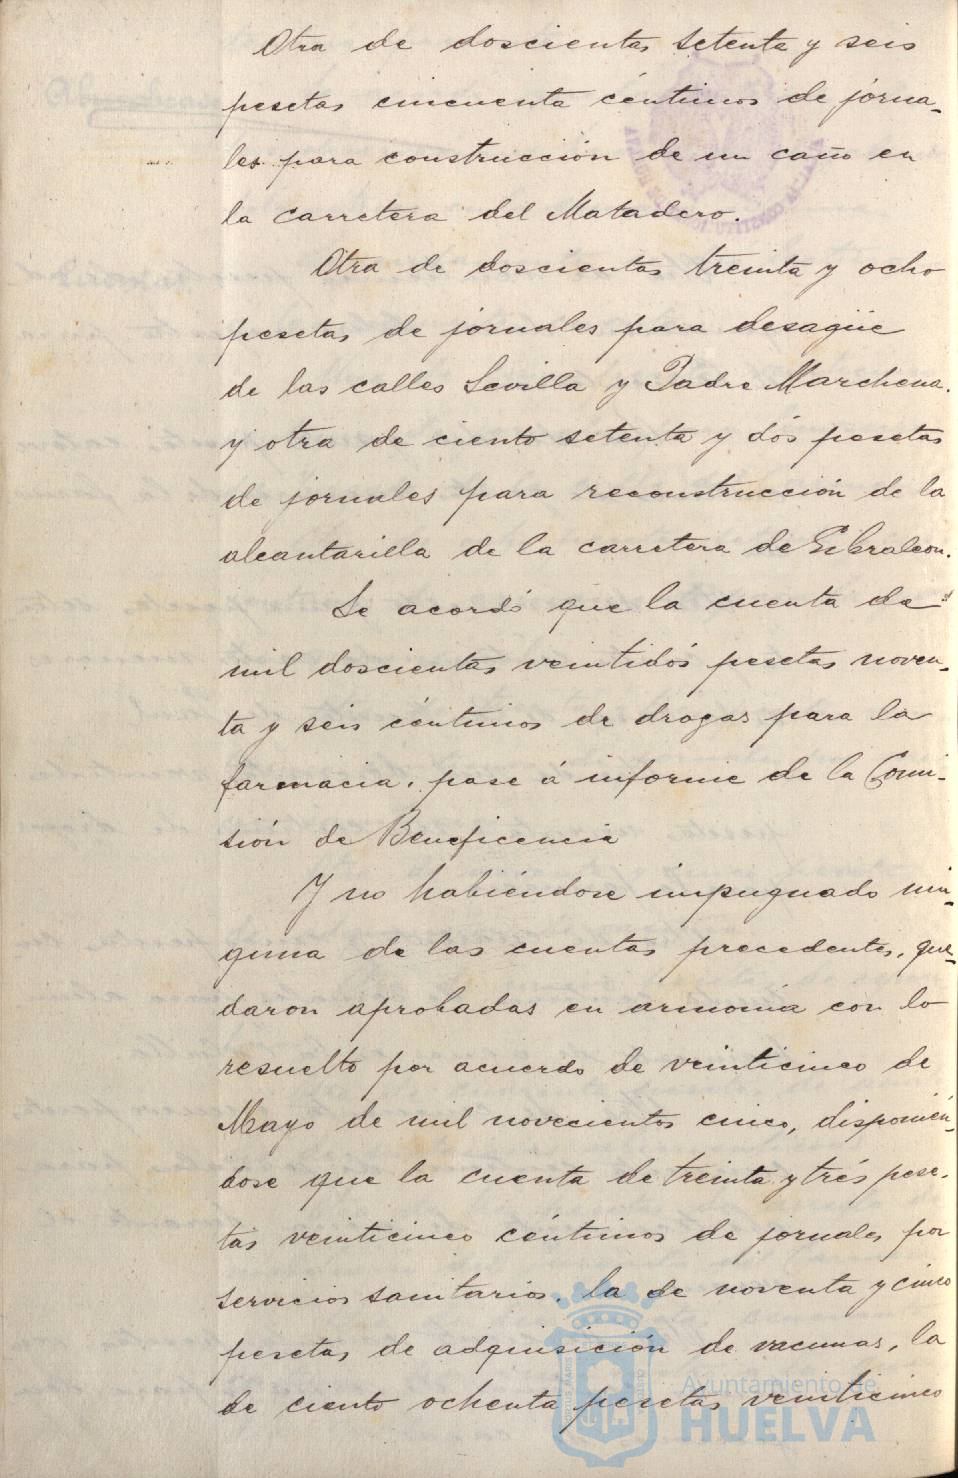 Otra de doscientas setenta y seis
pesetas cincuenta céntimos de jorna-
les para construcción de un caño en
la carretera del Matadero.
Otra de doscientas treinta y ocho
pesetas de jornales para desagüe
de las calles Sevilla y Padre Marchena.
y otra de ciento setenta y dós pesetas
de jornales para reconstrucción de la
alcantarilla de la carretera de Gibraleon.
Se acordó que la cuenta de
mil doscientas veintidós pesetas noven-
ta y séis céntimos de drogas para la
farmacia, pase á informe de la Comi-
sión de Beneficencia
Y no habiéndose impugnado nin-
guna de las cuentas precedentes, que-
daron aprobadas en armonía con lo
resuelto por acuerdo de veinticinco de
Mayo de mil novecientos cinco, disponién-
dose que la cuenta de treinta y trés pese-
tas veinticinco céntimos de jornales por
servicios sanitarios, la de noventa y cinco
pesetas de adquisición de vacunas, la
de ciento ochenta pesetas veinticinco
Ayuntamiento de
HUELVA